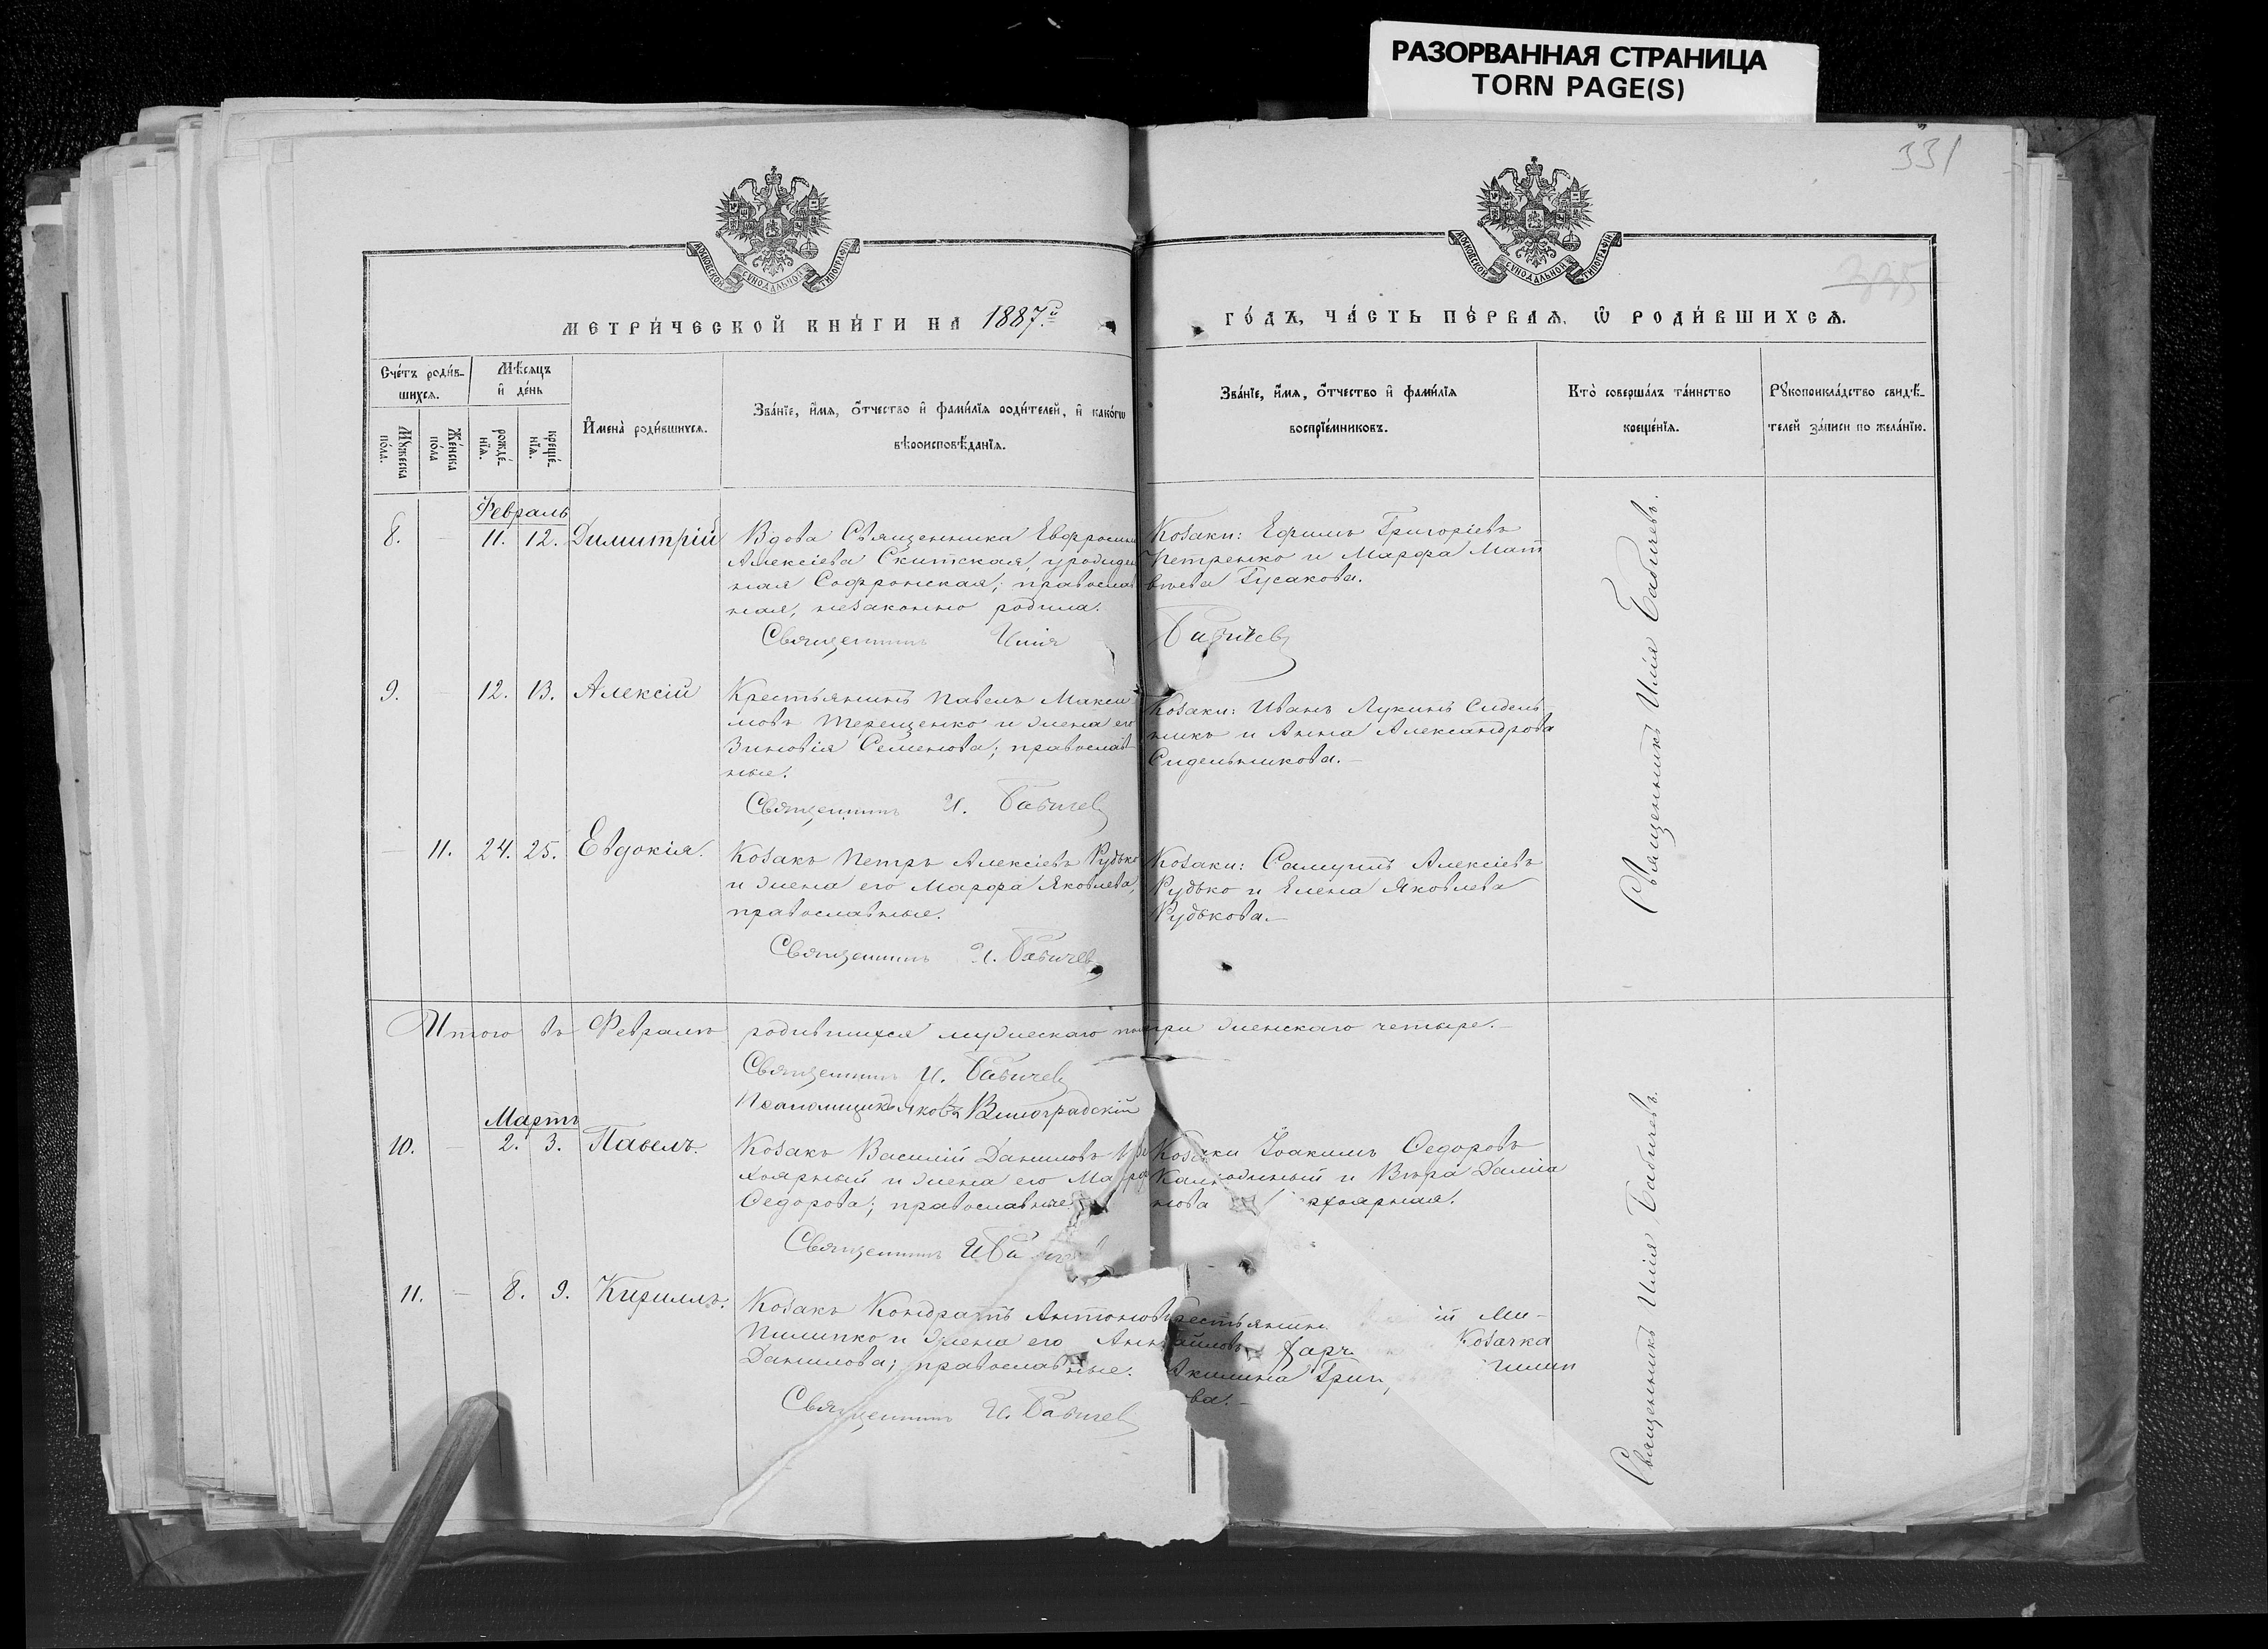 РАЗОРВАННАЯ СТРАНИЦА
TORN PAGE(S)
331
335
МОСКОВСКОЙ СѴНОДАЛЬНОЙ ТИПОГРАФІИ
МОСКОВСКОЙ СѴНОДАЛЬНОЙ ТИПОГРАФІИ
МЕТРИ́ЧЕСКОЙ КНИ́ГИ НА 1887й
ГО́ДЪ, ЧА́СТЬ ПЕ́РВАЯ, Ѡ РОДИ́ВШИХСЯ.
Сче́тъ роди́в-
шихся.
Мꙋ́жеска по́ла.
Же́нска по́ла
Мѣ́сяцъ
и҆ де́нь
рожде́-
нїя.
креще́-
нїя.
И҆мена̀ роди́вшихся.
Зва́нїе, и҆́мя, ѻ҆́тчество и҆ фами́лїя роди́телей, и҆ како́гѡ
вѣроисповѣ́данїя.
Зва́нїе, и҆́мя, ѻ҆́тчество и҆ фами́лїя
воспрїе́мниковъ.
Кто̀ соверша́лъ та́инство
креще́нїя.
Рꙋкоприкла́дство свидѣ́-
телей за́писи по жела́нїю.
Февраль
8. - 11. 12. Димитрій
Вдова Священника Евфросинія
Алексіева Скитская, урожден
ная Софронская; православ
ная, незаконно родила.
Священникъ Илія Бабичевъ
Козаки: Ефимъ Григоріевъ
Петренко и Марфа Мат
вѣева Гусакова.
9. - 12. 13. Алексій
Крестьянинъ Павелъ Макси
мовъ Терещенко и жена его
Зиновія Семенова; православ
ные.
Священникъ И. Бабичевъ
Козаки: Иванъ Лукинъ Сидель
никъ и Анна Александрова
Сидельникова.-
- 11. 24. 25. Евдокія.
Козакъ Петръ Алексіевъ Рудько
и жена его Марфа Яковлева,
православные.
Священникъ И. Бабичевъ
Козаки: Самуилъ Алексіевъ
Рудько и Елена Яковлева
Рудькова.-
Священникъ Илія Бабичевъ.
Итого въ Февралѣ родившихся мужескаго три женскаго четыре.-
Священникъ И. Бабичевъ
Псаломщикъ Яковъ Виноградскій
Мартъ
10. - 2. 3. Павелъ.
Козакъ Василій Даниловъ
хоярный и жена его Марфа
Ѳедорова; православные.
Священникъ И Баби
Козаки Іоакимъ Ѳедоровъ
и Вѣра Дани
лова рхоярная.
11. - 8. 9. Кириллъ.
Козакъ Кондратъ Антоновъ
Пилипко и жена его Анна
Данилова; православные.
Священникъ И. Бабичевъ
рестьянинъ ій Ми-
айловъ Харч Козачка
Акилина Григ Пилип
ва.-
Священникъ Илія Бабичевъ.